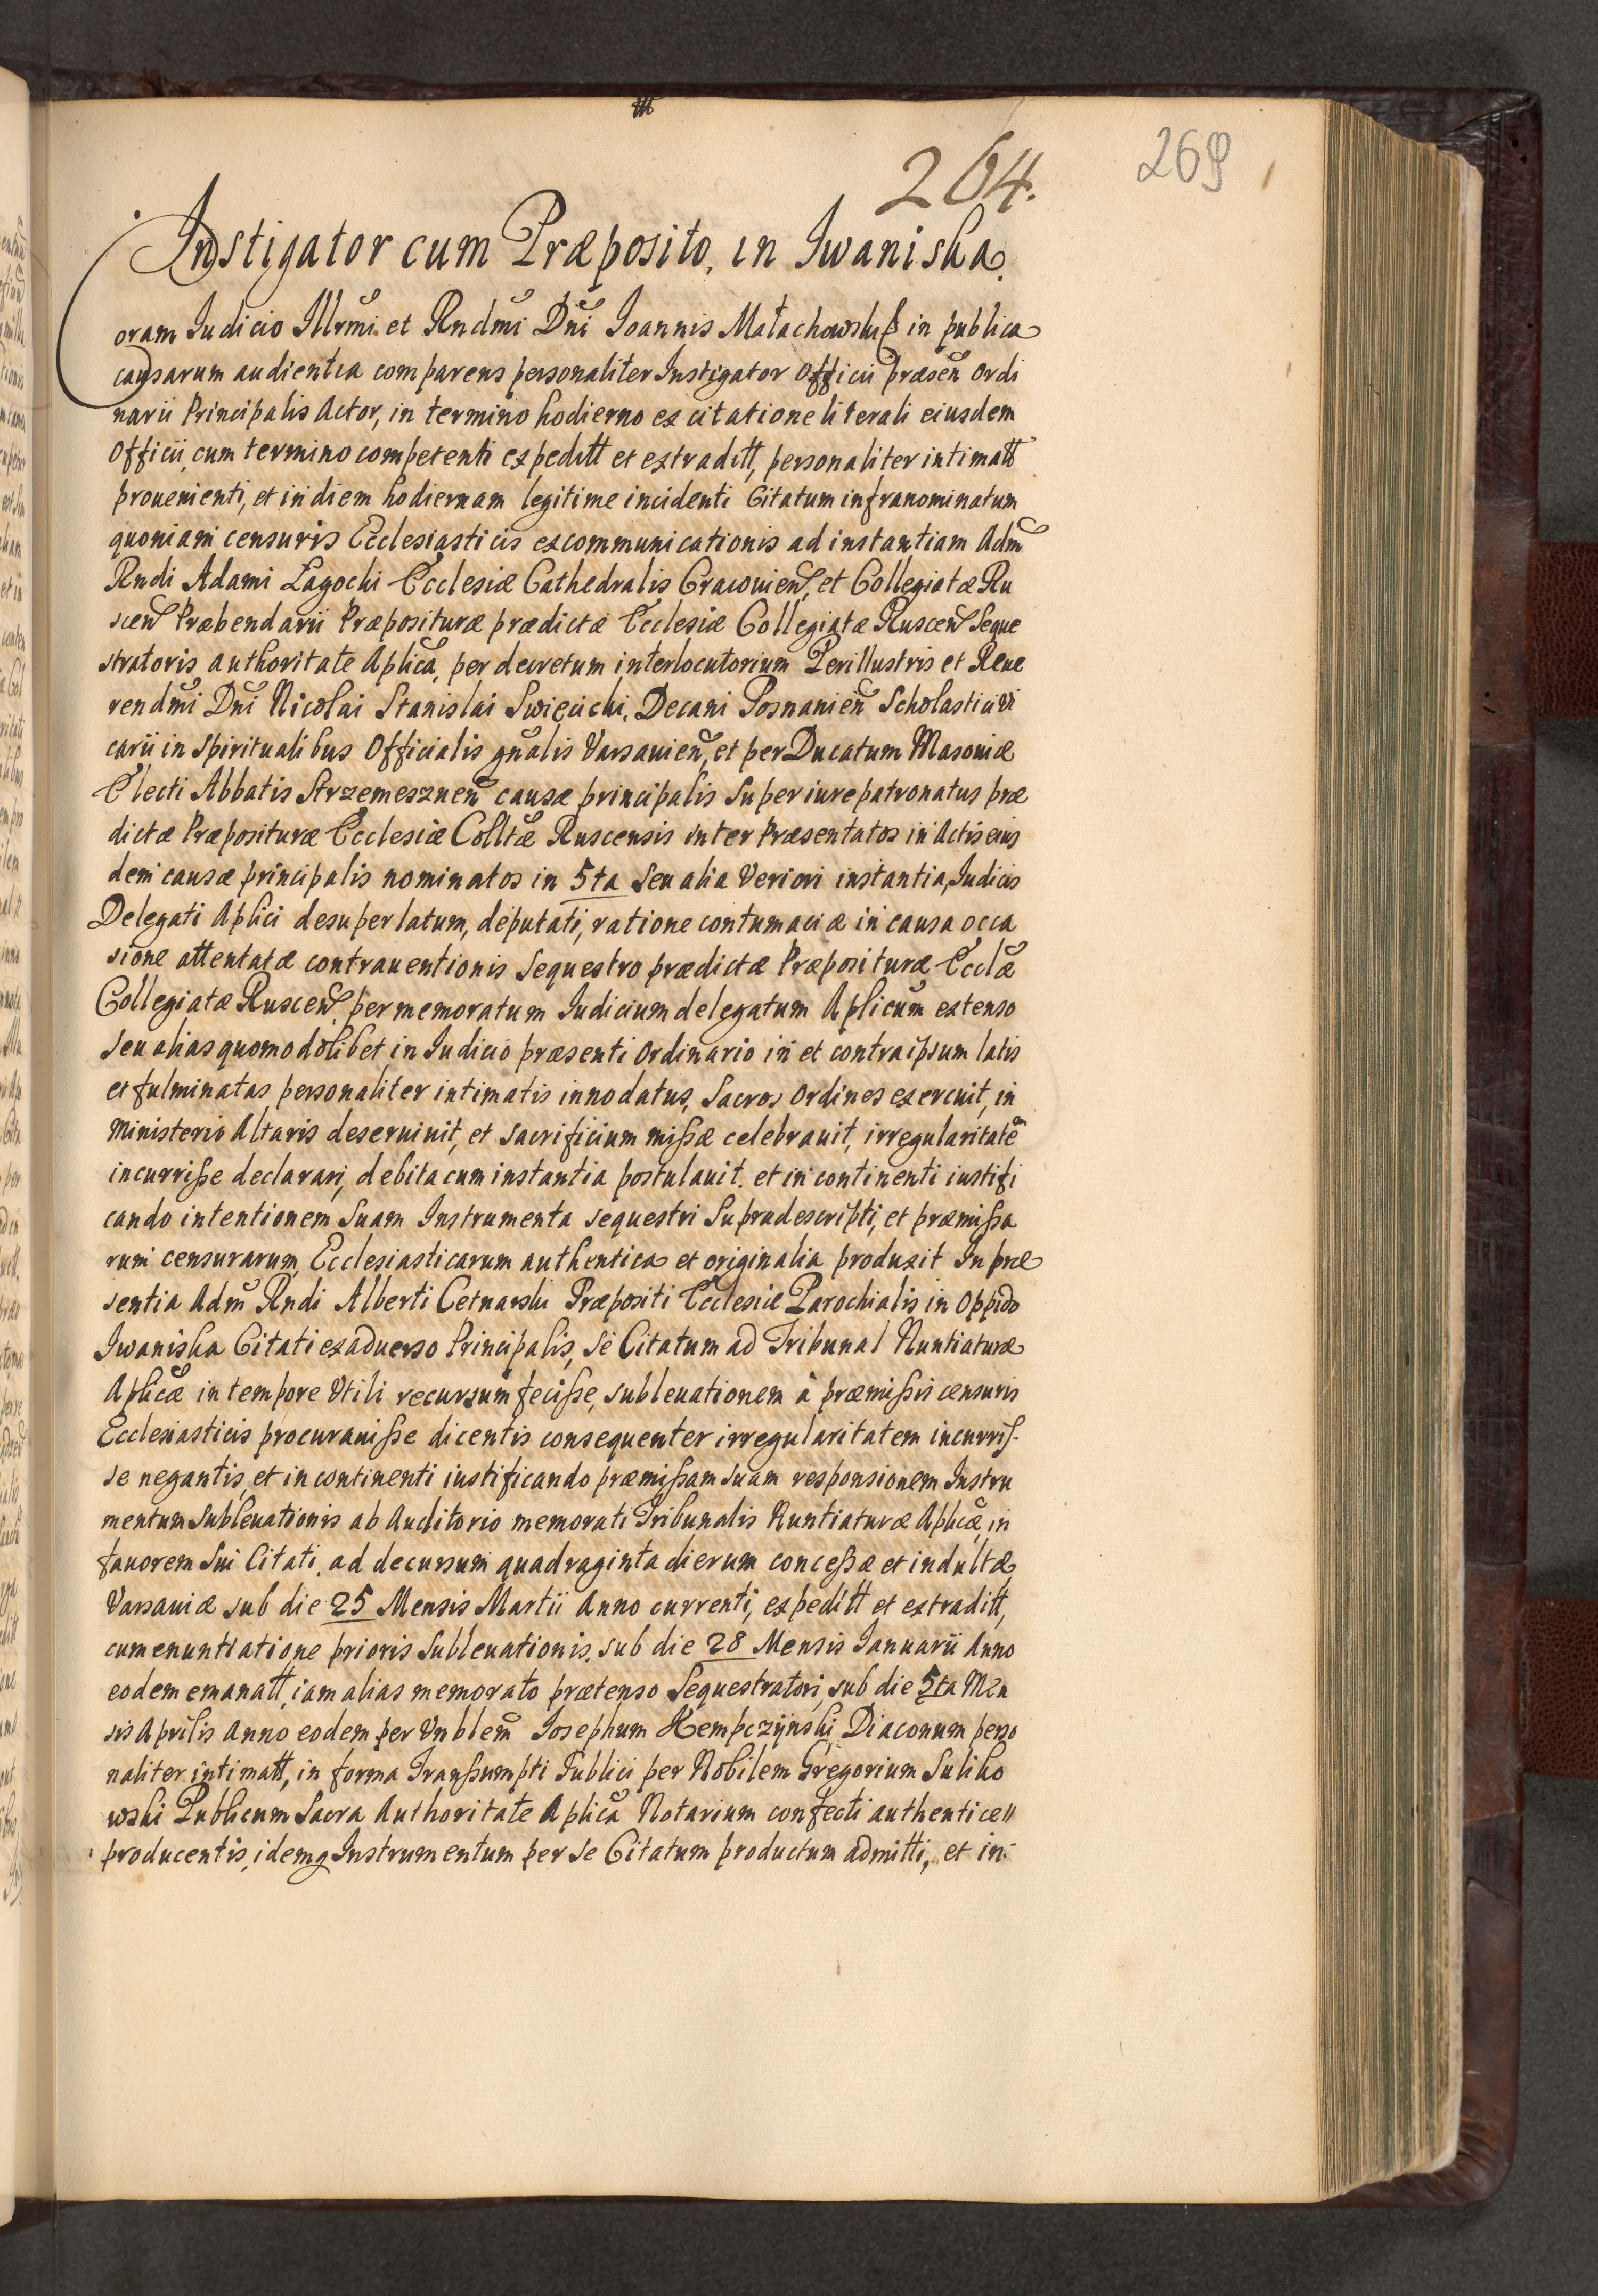 264.
269
Instigator cum Præposito, in Iwaniska.
Coram Iudicio Illrmi et Rndmi Dni Ioannis Małachowski in publica
causarum audientia comparens personaliter Instigator Officii præsen Ordi
narii Principalis Actor, in termino hodierno ex citatione literali eiusdem
Officii, cum termino competenti expeditt et extraditt, personaliter intimatt
prouenienti, et in diem hodiernam legitime incidenti Citatum infranominatum
quoniam censuris Ecclesiasticis excommunicationis ad instantiam Adm
Rndi Adami Łagocki Ecclesiæ Cathedralis Cracouien, et Collegiatæ Ru
scen Præbendarii Præposituræ prædictæ Ecclesiæ Collegiatæ Ruscen Seque
stratoris authoritate Aplica, per decretum interlocutorium Perillustris et Reue
rendmi Dni Nicolai Stanislai Swięcicki, Decani Posnanien Scholastici Vi
carii in Spiritualibus Officialis gnalis Varsauien, et per Ducatum Masouiæ
Electi Abbatis Strzemesznen causæ principalis super iurepatronatus præ
dictæ Præposituræ Ecclesiæ Colltæ Ruscensis inter Præsentatos in Actis eius
dem causæ principalis nominatos in 5ta seu alia Veriori instantia, Iudicis
Delegati Aplici desuper latum, deputati, ratione contumaciæ in causa occa
sione attentatæ contrauentionis Sequestro prædictæ Præposituræ Ecclæ
Collegiatæ Ruscen, per memoratum Iudicium delegatum Aplicum extenso
seu alias quomodolibet in Iudicio præsenti Ordinario in et contra ipsum latis
et fulminatas personaliter intimatis innodatus, Sacros Ordines exercuit, in
Ministerio Altaris deseruiuit, et sacrificium missæ celebrauit, irregularitate
incurrisse declarari, debita cum instantia postulauit. et in continenti iustifi
cando intentionem suam Instrumenta sequestri supradescripti, et præmissa
rum censurarum Ecclesiasticarum authentica et originalia produxit In præ
sentia Adm Rndi Alberti Cetnarski Præpositi Ecclesiæ Parochialis in Oppido
Iwaniska Citati ex aduerso Principalis, se Citatum ad Tribunal Nuntiaturæ
Aplicæ in tempore Vtili recursum fecisse, subleuationem à præmissis censuris
Ecclesiasticis procurauisse dicentis consequenter irregularitatem incurris-
se negantis, et in continenti iustificando præmissam suam responsionem Instru
mentum subleuationis ab Auditorio memorati Tribunalis Nuntiaturæ Aplicæ, in
fauorem sui Citati, ad decursum quadraginta dierum concessæ et indultæ
Varsauiæ sub die 25 Mensis Martii Anno currenti, expeditt et extraditt,
cum enuntiatione prioris Subleuationis, sub die 28 Mensis Ianuarii Anno
eodem emanatt, iam alias memorato prætenso Sequestratori, sub die 5ta Men
sis Aprilis Anno eodem per Vnblem Iosephum Kempczÿnski, Diaconum perso
naliter intimatt, in forma Transsumpti Publici per Nobilem Gregorium Suliko
wski Publicum Sacra Authoritate Aplica Notarium confecti authentice
producentis, idemq Instrumentum per se Citatum productum admitti, et in